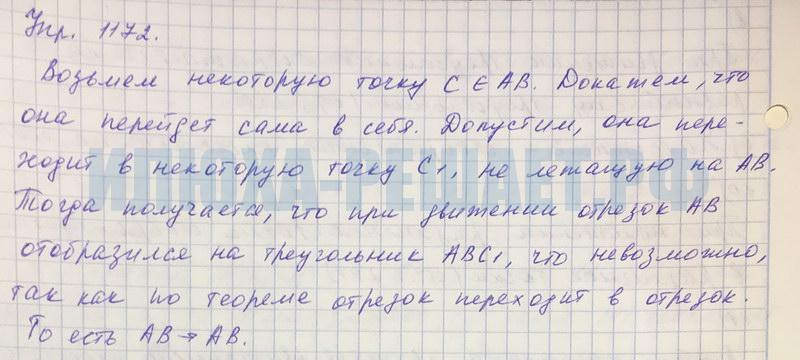 Упр. 1172.
Возьмем некоторую точку C ∈ AB. Докажем, что
она перейдет сама в себя. Допустим, она пере-
ходит в некоторую точку C1, не лежащую на AB.
ИЛЮХА-РЕШАЕТ.РФ
Тогда получается, что при движении отрезок AB
отобразился на треугольник ABC1, что невозможно,
так как по теореме отрезок переходит в отрезок.
То есть AB→AB.